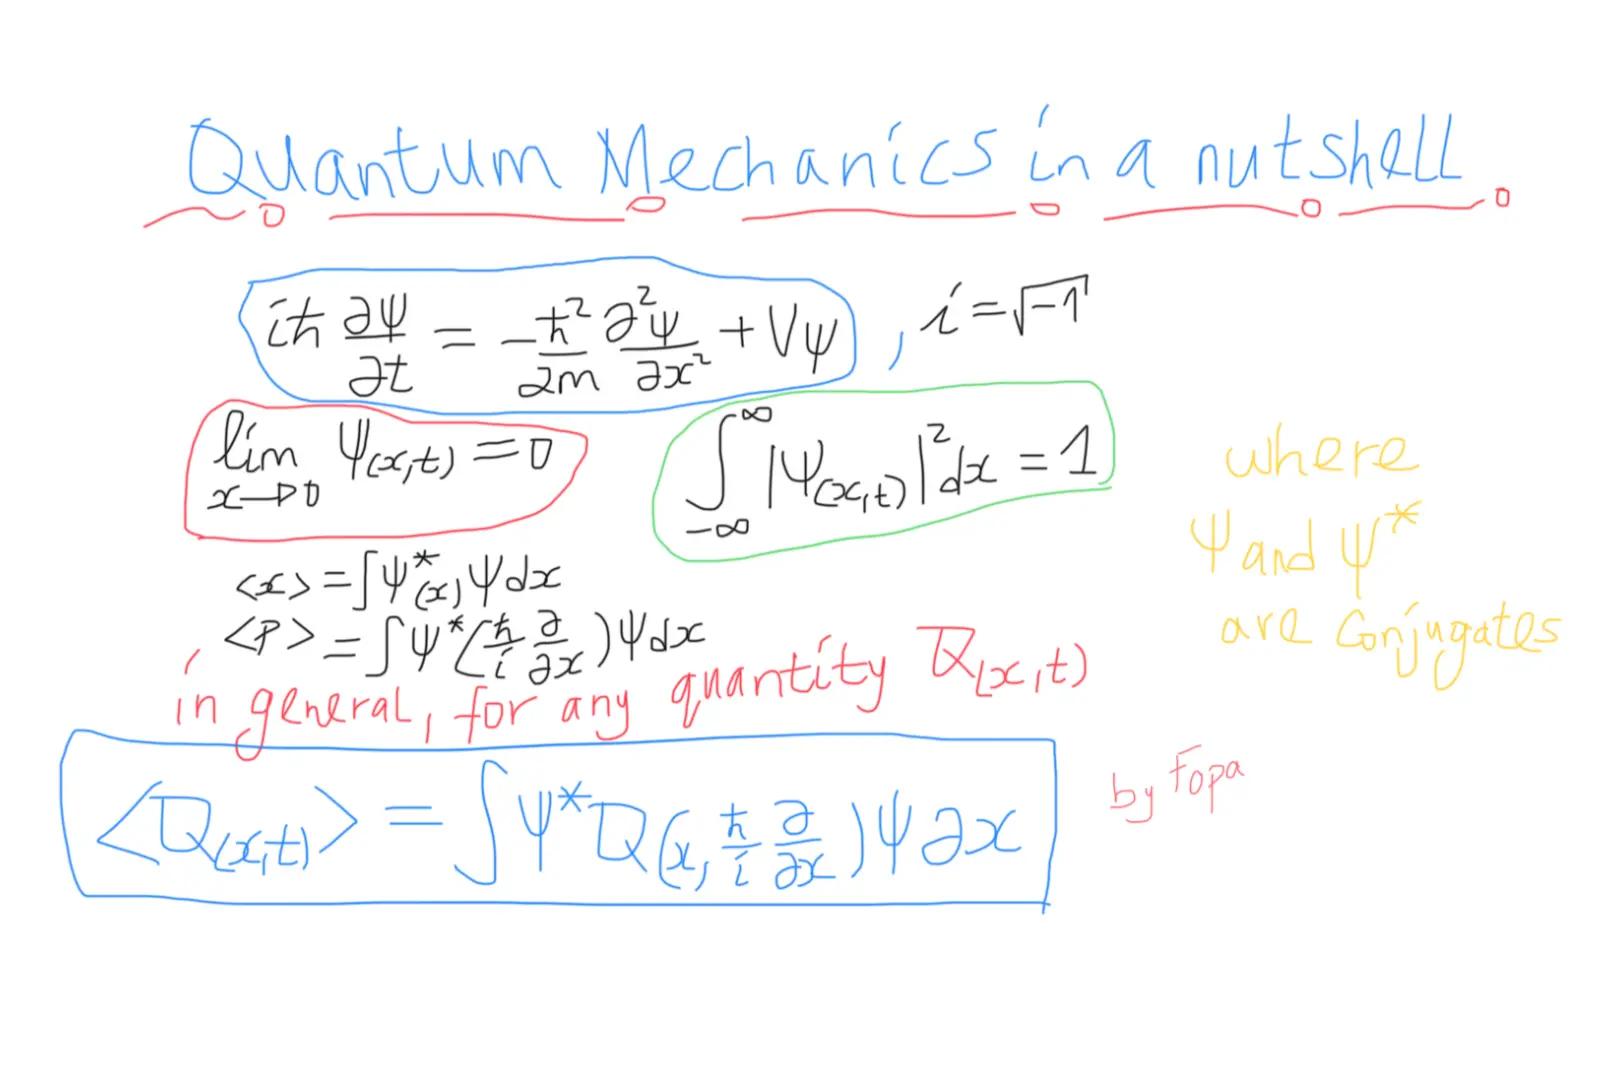 Quantum Mechanics in a nutshell
iħ ∂ψ/∂t = -ħ²/2m ∂²ψ/∂x² + Vψ , i = √-1
lim x→0 Ψ(x,t) = 0
∫_-∞^∞ |Ψ(x,t)|² dx = 1
where
Ψ and ψ*
are Conjugates
<x> = ∫ψ*(x)ψdx
<P> = ∫ψ*(ħ/i ∂/∂x)ψdx
in general, for any quantity Q(x,t)
<Q(x,t)> = ∫ψ*Q(x, ħ/i ∂/∂x)ψ∂x
by Fopa